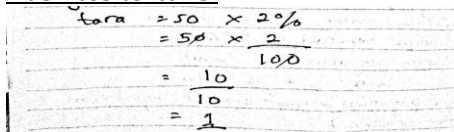 tara = 50 × 2%
= 50 × 2/100
= 10/10
= 1